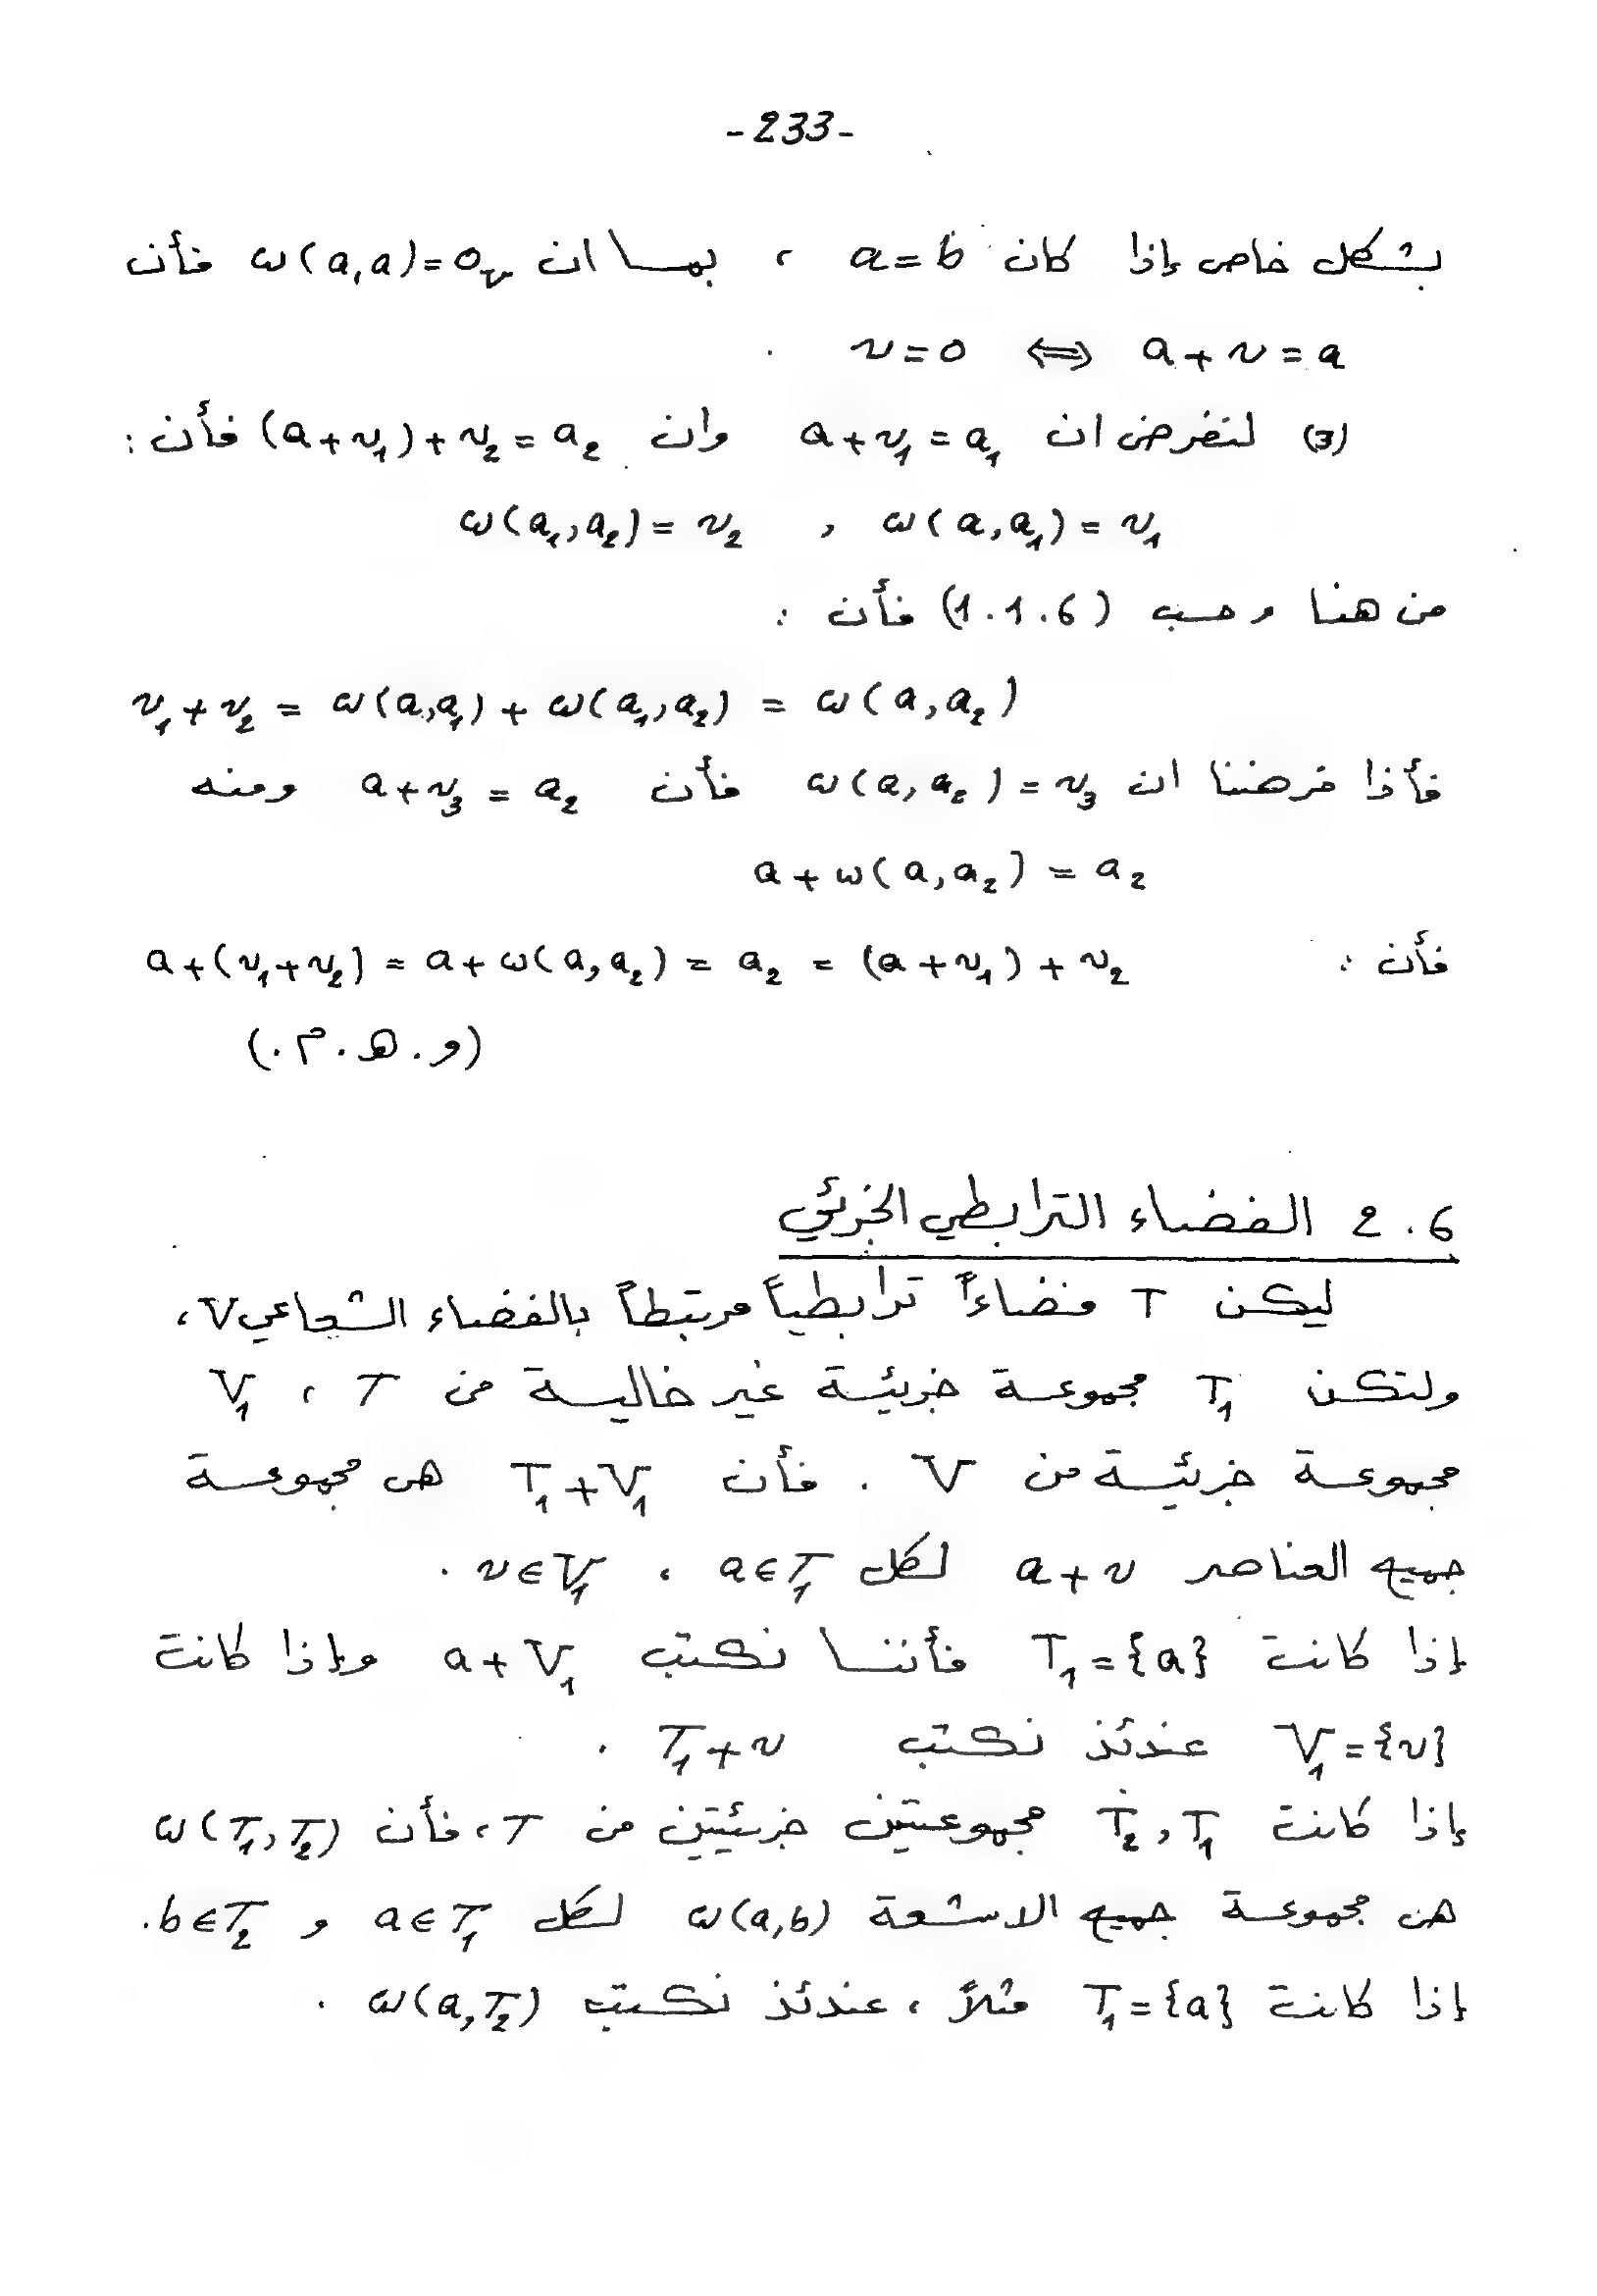 -233-
بشكل خاص إذا كان a=b ، بما ان ω(a,a)=0_V فأن
v=0 ⟺ a+v=a .
(3) لنفرض ان a+v₁=a₁ وان (a+v₁)+v₂=a₂ فأن :
ω(a₁,a₂)=v₂ , ω(a,a₁)=v₁
من هنا وحسب (1.1.6) فأن :
v₁+v₂ = ω(a,a₁)+ω(a₁,a₂) = ω(a,a₂)
فأذا فرضنا ان ω(a,a₂)=v₃ فأن a+v₃=a₂ ومنه
a+ω(a,a₂)=a₂
فأن : a+(v₁+v₂)=a+ω(a,a₂)=a₂=(a+v₁)+v₂
(و. هـ. م.)
2.6 الفضاء الترابطي الجزئي
ليكن T فضاءاً ترابطياً مرتبطاً بالفضاء الشعاعي V،
ولتكن T₁ مجموعة جزئية غير خالية من T ، V₁
مجموعة جزئية من V . فأن T₁+V₁ هي مجموعة
جميع العناصر a+v لكل a∈T₁ ، v∈V₁ .
إذا كانت T₁={a} فأننا نكتب a+V₁ وإذا كانت
V₁={v} عندئذ نكتب T₁+v .
إذا كانت T₂,T₁ مجموعتين جزئيتين من T، فأن ω(T₁,T₂)
هي مجموعة جميع الاشعة ω(a,b) لكل a∈T₁ و b∈T₂.
إذا كانت T₁={a} مثلاً ، عندئذ نكتب ω(a,T₂) .